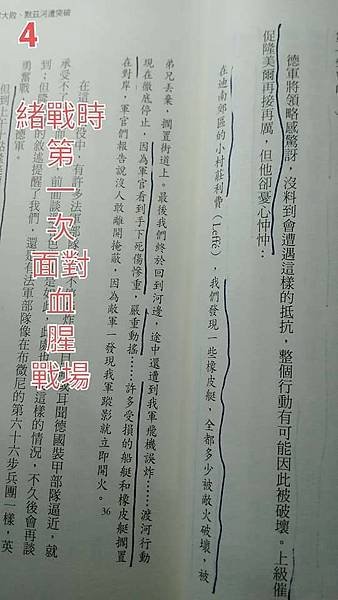 大敗、默茲河遭突破
4
緒戰時
第一次面對血腥戰場
德軍將領略感驚訝，沒料到會遭遇這樣的抵抗，整個行動有可能因此被破壞。上級催
促隆美爾再接再厲，但他卻憂心忡忡：
在迪南郊區的小村莊利費（Leffé），我們發現一些橡皮艇，全都多少被敵火破壞，被
弟兄丟棄，擱置街道上。最後我們終於回到河邊，途中還遭到我軍飛機誤炸……渡河行動
現在徹底停止，因為軍官看到手下死傷慘重，嚴重動搖……許多受損的船艇和橡皮艇擱置
在對岸，軍官們報告說沒人敢離開掩蔽，因為敵軍一發現我軍蹤影就立即開火。36
在這 役中，有許多法軍部隊 不 炸 目 耳聞德國裝甲部隊逼近，就
承受不了 前面談 是如此，此處也 這樣的情況，不久後會再談
到；但隆 的敘述提醒了我們，還是有法軍部隊像在布微尼的第六十六步兵團一樣，英
勇奮戰 德軍。
但到上 十點